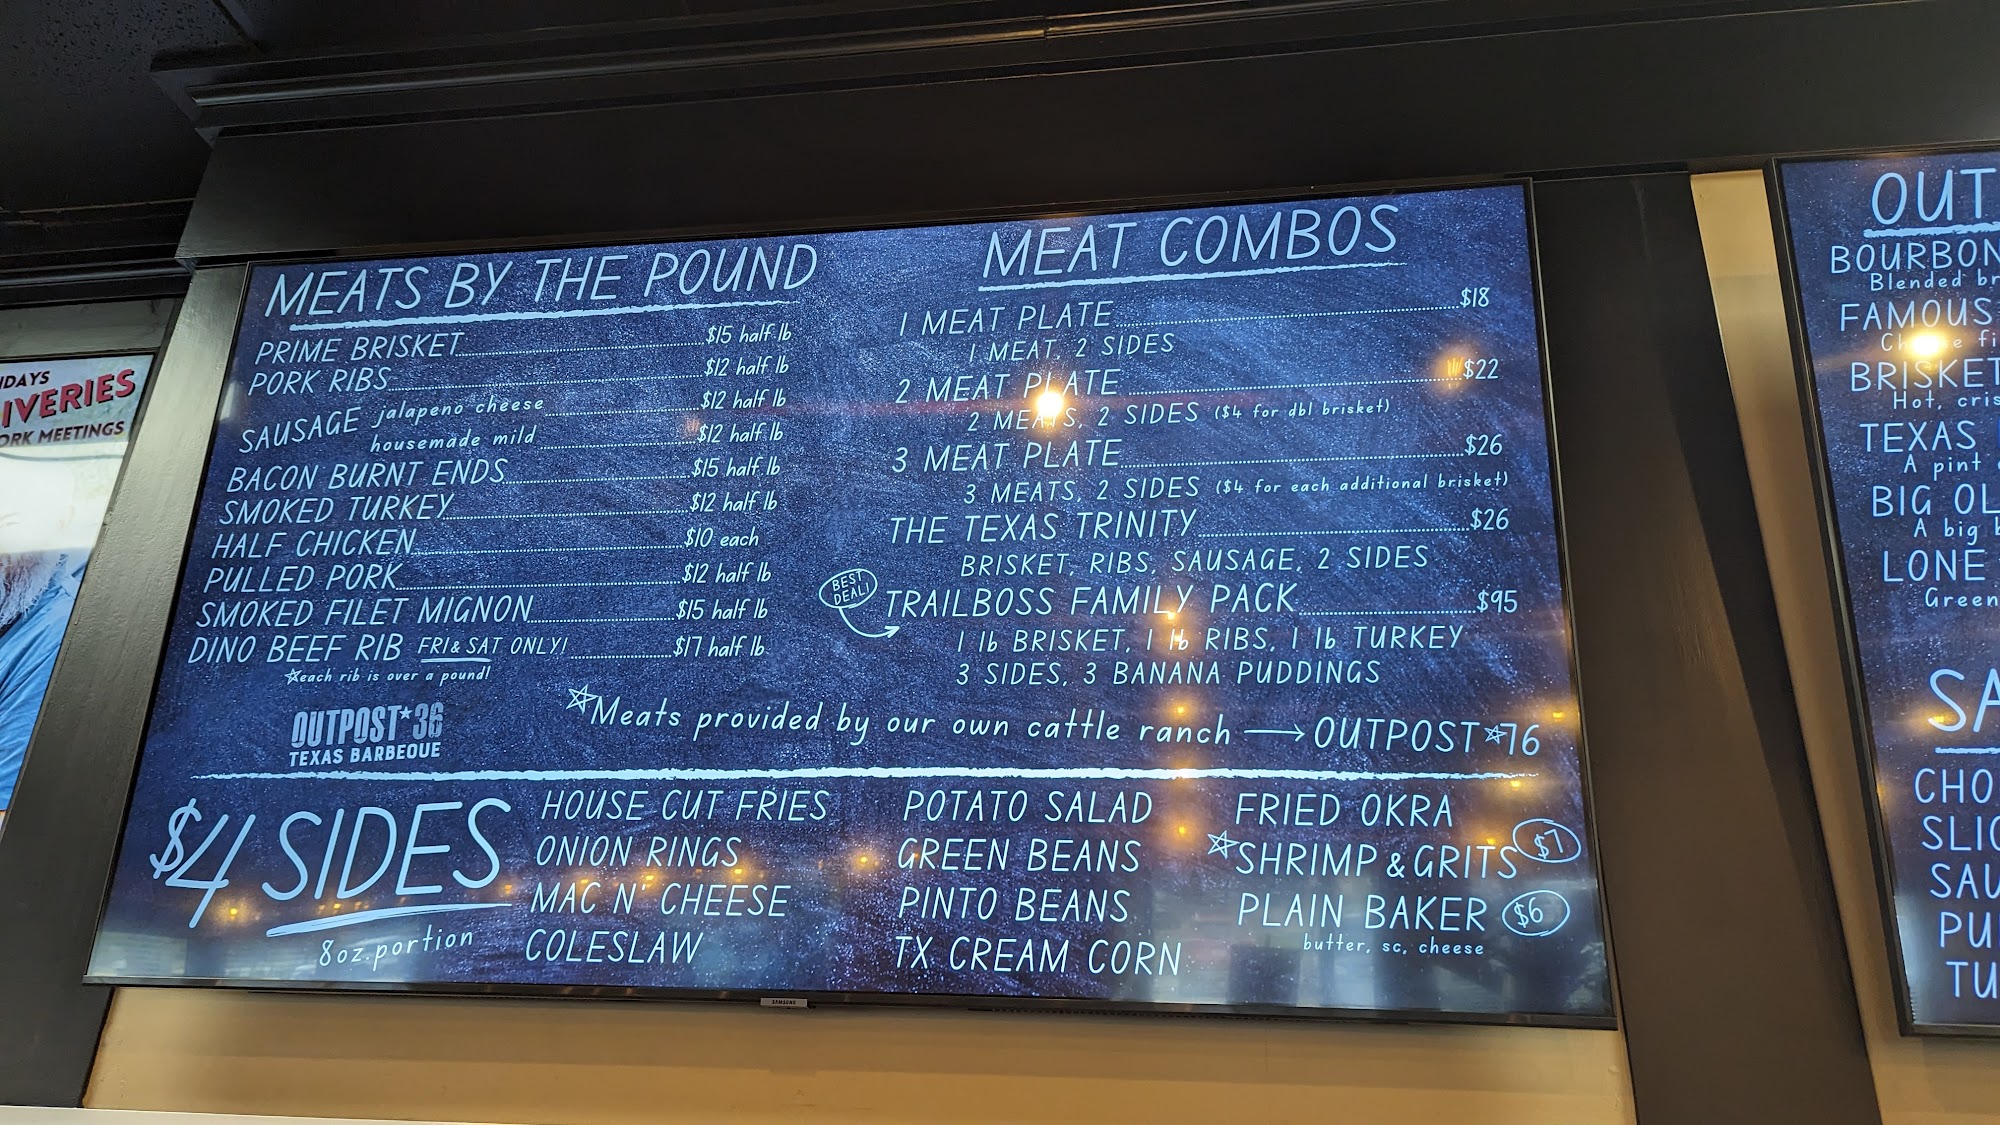 IDAYS
IVERIES
ORK MEETINGS
MEATS BY THE POUND
PRIME BRISKET $15 half lb
PORK RIBS $12 half lb
SAUSAGE jalapeno cheese $12 half lb
housemade mild $12 half lb
BACON BURNT ENDS $15 half lb
SMOKED TURKEY $12 half lb
HALF CHICKEN $10 each
PULLED PORK $12 half lb
SMOKED FILET MIGNON $15 half lb
DINO BEEF RIB FRI & SAT ONLY! $17 half lb
☆each rib is over a pound!
OUTPOST★36
TEXAS BARBEQUE
MEAT COMBOS
1 MEAT PLATE $18
1 MEAT, 2 SIDES
2 MEAT PLATE $22
2 MEATS, 2 SIDES ($4 for dbl brisket)
3 MEAT PLATE $26
3 MEATS, 2 SIDES ($4 for each additional brisket)
THE TEXAS TRINITY $26
BRISKET, RIBS, SAUSAGE, 2 SIDES
BEST DEAL!
TRAILBOSS FAMILY PACK $95
1 lb BRISKET, 1 lb RIBS, 1 lb TURKEY
3 SIDES, 3 BANANA PUDDINGS
☆Meats provided by our own cattle ranch → OUTPOST☆76
$4 SIDES
8oz. portion
HOUSE CUT FRIES
ONION RINGS
MAC N' CHEESE
COLESLAW
POTATO SALAD
GREEN BEANS
PINTO BEANS
TX CREAM CORN
FRIED OKRA
☆SHRIMP & GRITS $7
PLAIN BAKER $6
butter, sc, cheese
SAMSUNG
OUT
BOURBON
Blended br
FAMOUS
fi
BRISKET
Hot, cris
TEXAS
A pint
BIG OL
A big b
LONE
Green
SA
CHO
SLIC
SAU
PU
TU